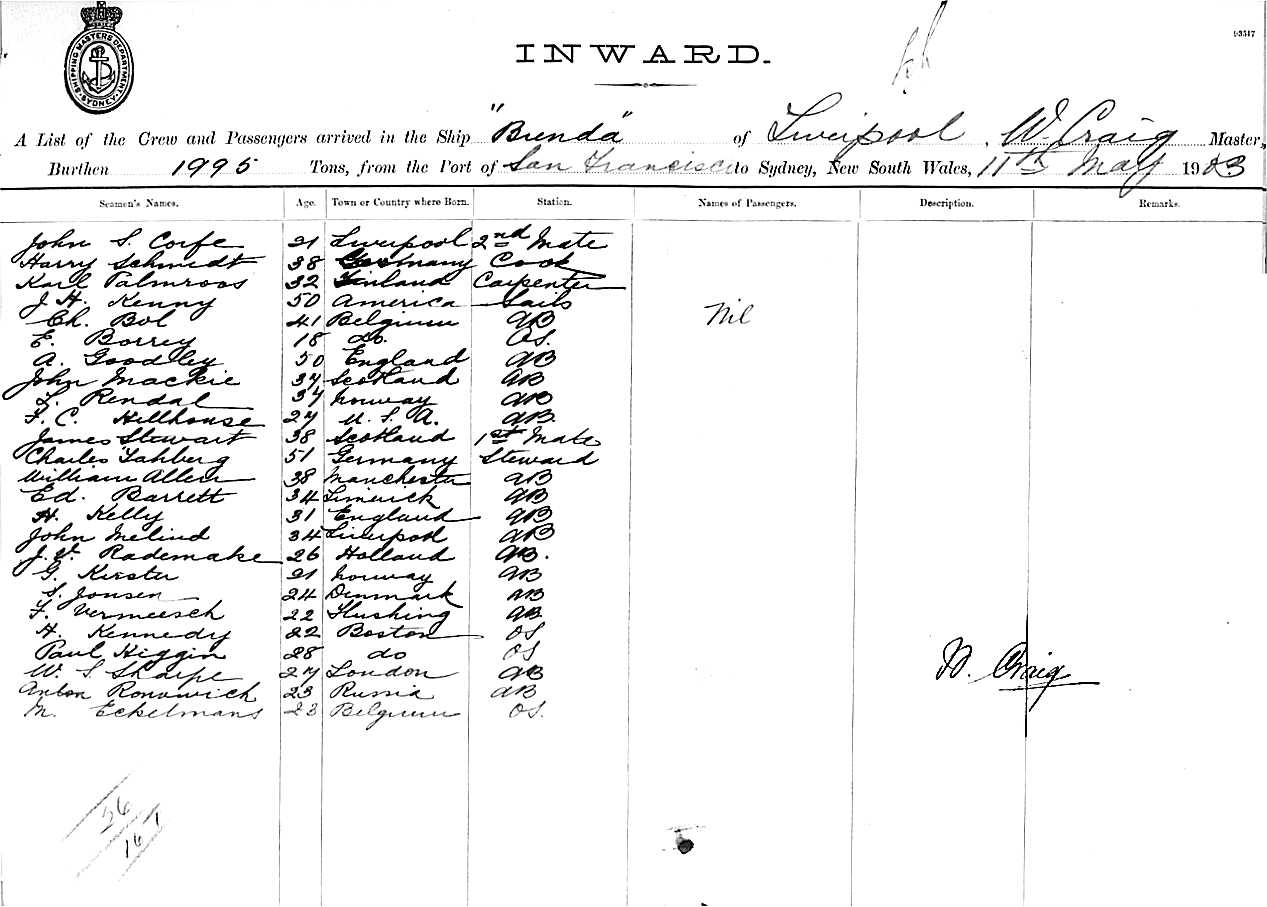 SHIPPING MASTERS DEPARTMENT SYDNEY
INWARD.
A List of the Crew and Passengers arrived in the Ship "Brenda" of Liverpool, W. Craig Master,
Burthen 1995 Tons, from the Port of San Francisco to Sydney, New South Wales, 11th May 1903
Seamen's Names. Age. Town or Country where Born. Station. Names of Passengers. Description. Remarks.
John S. Corfe 21 Liverpool 2nd Mate
Harry Schmidt 38 Germany Cook
Karl Palmroos 32 Finland Carpenter
J. H. Kenny 50 America Sails
Nil
Ch. Bol 41 Belgium AB
E. Borrey 18 do. OS.
A. Goodley 50 England AB
John Mackie 37 Scotland AB
L. Rendal 37 Norway AB
F. C. Hillhouse 27 U. S. A. AB.
James Stewart 38 Scotland 1st Mate
Charles Tahberg 51 Germany Steward
William Allen 38 Manchester AB
Ed. Barrett 34 Limerick AB
H. Kelly 31 England AB
John Melind 34 Liverpool AB
J. V. Rademake 26 Holland AB.
G. Kirster 21 Norway AB
S. Jonsen 24 Denmark AB
F. Vermeesch 22 Flushing AB
H. Kennedy 22 Boston OS
Paul Higgin 28 do OS
W. S. Sharpe 27 London AB
W. Craig
Anton Ronowich 23 Russia AB
M. Eckelmans 23 Belgium OS.
26
16